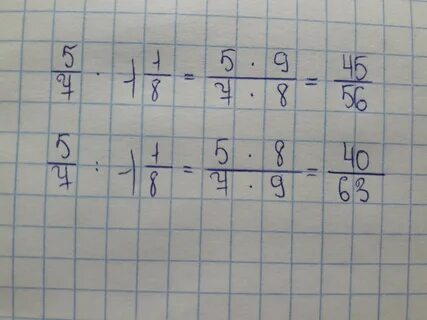 5/7 · 1 1/8 = 5 · 9 / 7 · 8 = 45/56
5/7 : 1 1/8 = 5 · 8 / 7 · 9 = 40/63